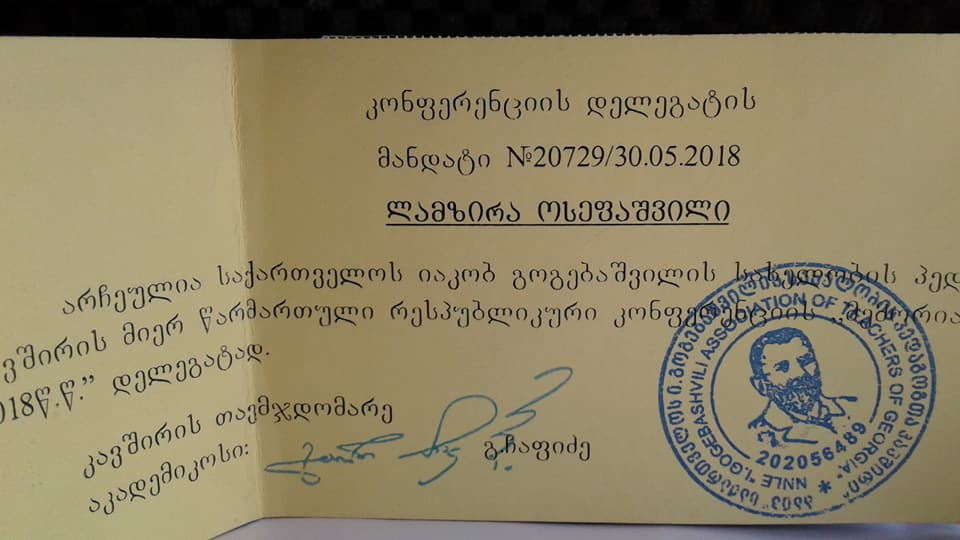 კონფერენციის დელეგატის
მანდატი №20729/30.05.2018
ლამზირა ოსეფაშვილი
არჩეულია საქართველოს იაკობ გოგებაშვილის სახელობის პედ
ავშირის მიერ წარმართული რესპუბლიკური კონფერენციის „მემორია
018წ.წ.” დელეგატად.
კავშირის თავმჯდომარე
აკადემიკოსი:
გ.ჩაფიძე
NNLE „I.GOGEBASHVILI ASSOCIATION OF TEACHERS OF GEORGIA“
202056489